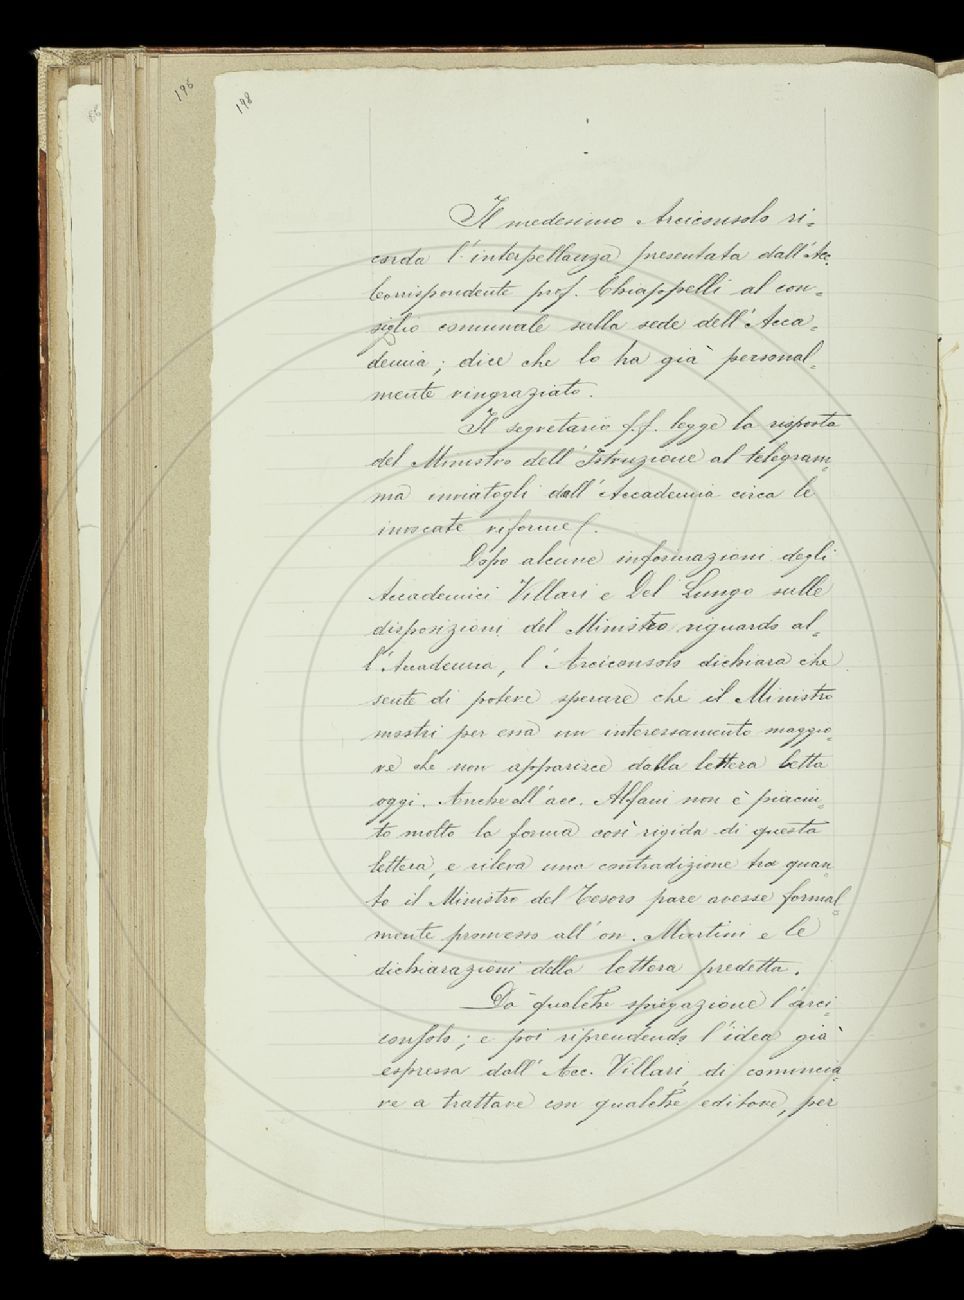 196
198
Il medesimo Arciconsolo ri=
corda l'interpellanza presentata dall'Ac.
Corrispondente prof. Chiappelli al con=
siglio comunale sulla sede dell'Acca=
demia; dice che lo ha già personal=
mente ringraziato.
Il segretario f.f. legge la risposta
del Ministro dell'Istruzione al telegram=
ma inviatogli dall'Accademia circa le
invocate riforme.
Dopo alcune informazioni degli
Accademici Villari e Del Lungo sulle
disposizioni del Ministro riguardo al=
l'Accademia, l'Arciconsolo dichiara che
sente di potere sperare che il Ministro
mostri per essa un interessamento maggio=
re che non apparisce dalla lettera letta
oggi. Anche all'acc. Alfani non è piaciu=
to molto la forma così rigida di questa
lettera, e rileva una contradizione tra quan=
to il Ministro del Tesoro pare avesse formal=
mente promesso all'on. Martini e le
dichiarazioni della lettera predetta.
Dà qualche spiegazione l'arci=
consolo; e poi riprendendo l'idea già
espressa dall'Acc. Villari, di comincia=
re a trattare con qualche editore, per